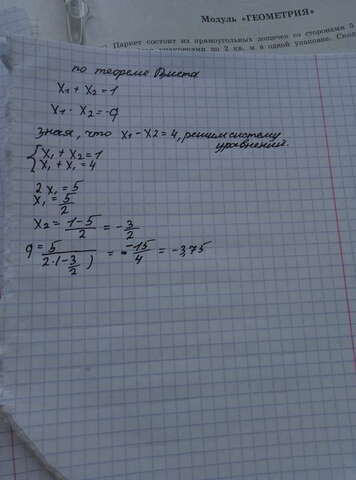 Модуль «ГЕОМЕТРИЯ»
Паркет состоит из прямоугольных дощечек со сторонами 5
упаковками по 2 кв. м в одной упаковке. Ско
по теореме Виета
x₁ + x₂ = 1
x₁ · x₂ = -q
зная, что x₁ - x₂ = 4, решим систему
уравнений.
{ x₁ + x₂ = 1
x₁ + x₁ = 4
2x₁ = 5
x₁ = 5/2
x₂ = 1-5/2 = -3/2
q = 5/2·(-3/2) = -15/4 = -3,75